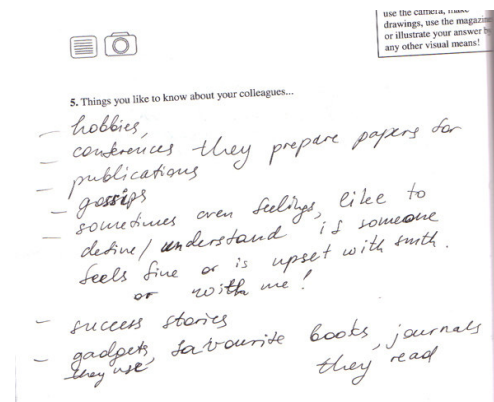 use the camera, make
drawings, use the magazine
or illustrate your answer by
any other visual means!
5. Things you like to know about your colleagues...
— hobbies,
— conferences they prepare papers for
— publications
— gossips
— sometimes even feelings, like to
define / understand if someone
feels fine or is upset with smth.
or with me!
— success stories
— gadgets, favourite books, journals
they use they read